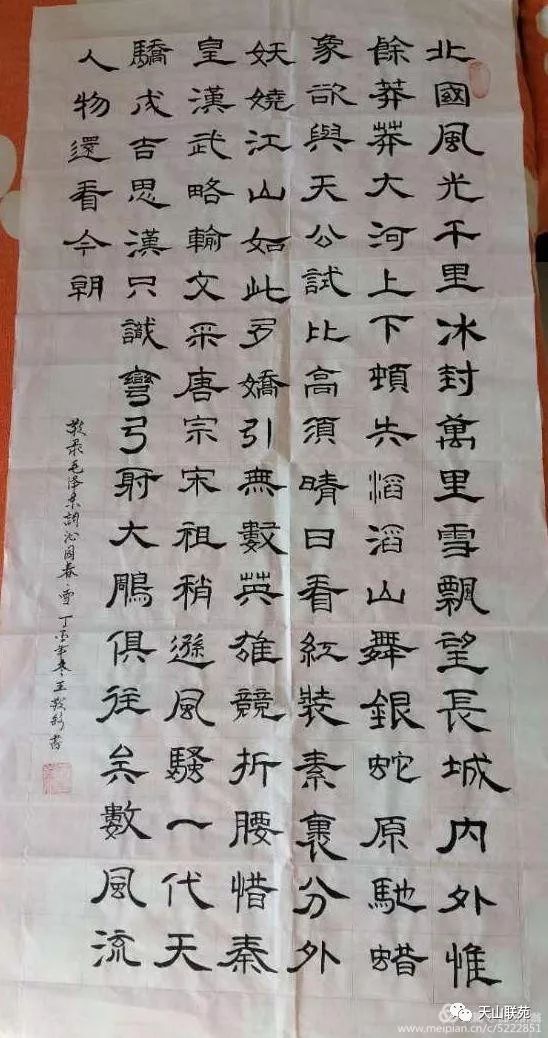 北國風光千里冰封萬里雪飄望長城內外惟
餘莽莽大河上下頓失滔滔山舞銀蛇原馳蜡
象欲與天公試比高須晴日看紅裝素裹分外
妖嬈江山如此多嬌引無數英雄競折腰惜秦
皇漢武略輸文采唐宗宋祖稍遜風騷一代天
驕成吉思漢只識彎弓射大鵰俱往矣數風流
人物還看今朝
敬录毛泽东词沁园春 雪 丁 年冬王 书
天山联苑
www.meipian.cn/c/5222851